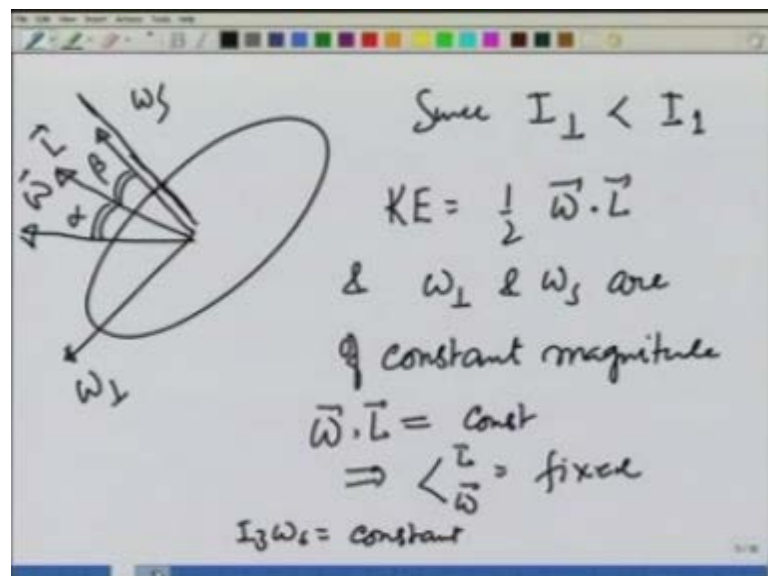 ωs
L⃗
ω⃗
β
α
ω⊥
Since I⊥ < I1
KE = 1/2 ω⃗ . L⃗
& ω⊥ & ωs are
of constant magnitude
ω⃗ . L⃗ = Const
⇒ < L⃗ ω⃗ = fixed
I3 ωs = constant